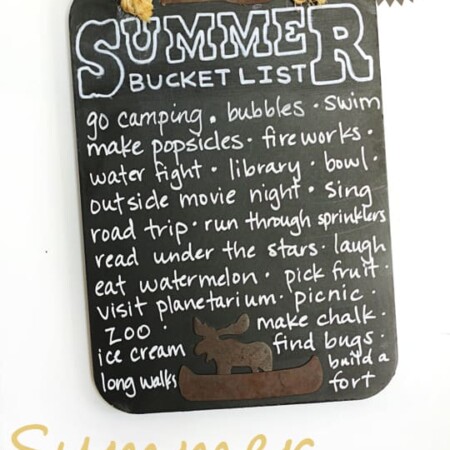 SUMMER
BUCKET LIST
go camping. bubbles · swim
make popsicles · fireworks ·
water fight · library · bowl ·
outside movie night · sing
road trip · run through sprinklers
read under the stars · laugh
eat watermelon · pick fruit ·
visit planetarium · picnic ·
zoo · make chalk ·
ice cream find bugs ·
long walks build a
fort
Summer